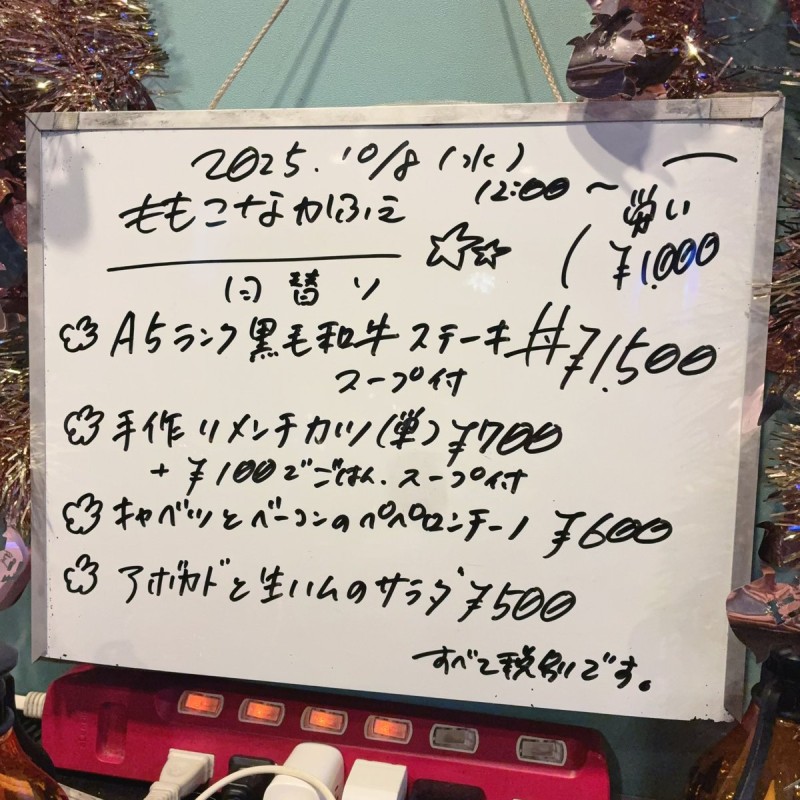 2025. 10/8 (水)
12:00～
ももこなかふぇ
(労い ¥1.000
日替り
A5ランク黒毛和牛ステーキ丼¥1.500
スープ付
手作りメンチカツ(単)¥700
+¥100でごはん、スープ付
キャベツとベーコンのペペロンチーノ ¥600
アボカドと生ハムのサラダ¥500
すべて税別です。